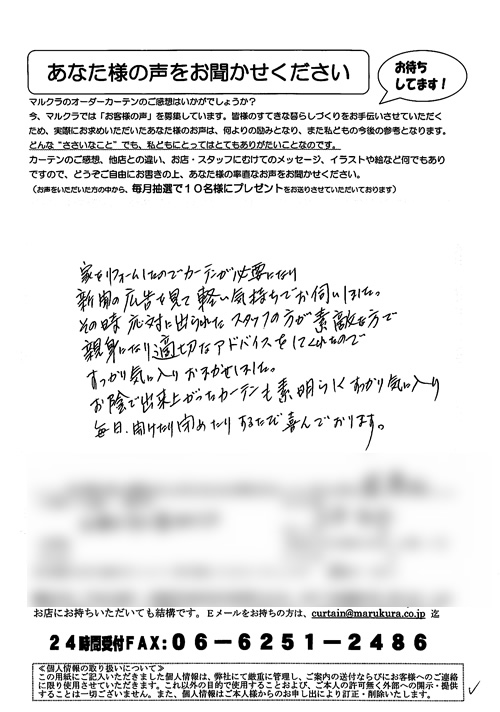 あなた様の声をお聞かせください
お待ち
してます!
マルクラのオーダーカーテンのご感想はいかがでしょうか?
今、マルクラでは「お客様の声」を募集しています。皆様のすてきな暮らしづくりをお手伝いさせていただく
ため、実際にお求めいただいたあなた様のお声は、何よりの励みとなり、また私どもの今後の参考となります。
どんな“ささいなこと”でも、私どもにとってはとてもありがたいことなのです。
カーテンのご感想、他店との違い、お店・スタッフにむけてのメッセージ、イラストや絵など何でもあり
ですので、どうぞご自由にお書きの上、あなた様の率直なお声をお聞かせください。
(お声をいただいた方の中から、毎月抽選で10名様にプレゼントをお送りさせていただいております)
家をリフォームしたのでカーテンが必要になり
新聞の広告を見て軽い気持ちでお伺いしました。
その時応対に出られたスタッフの方が素敵な方で
親身になり適切なアドバイスをしてくれたので
すっかり気に入りおまかせしました。
お陰で出来上がったカーテンも素晴らしくすっかり気に入り
毎日、開けたり閉めたりするたび喜んでおります。
お店にお持ちいただいても結構です。Eメールをお持ちの方は、curtain@marukura.co.jp 迄
24時間受付FAX:06-6251-2486
≪個人情報の取り扱いについて≫
この用紙にご記入いただきました個人情報は、弊社にて厳重に管理し、ご案内の送付ならびにお客様へのご連絡
に限り使用させていただきます。これ以外の目的で使用することおよび、ご本人の許可無く外部への開示・提供
することは一切ございません。また、個人情報はご本人様からのお申し出により訂正・削除いたします。